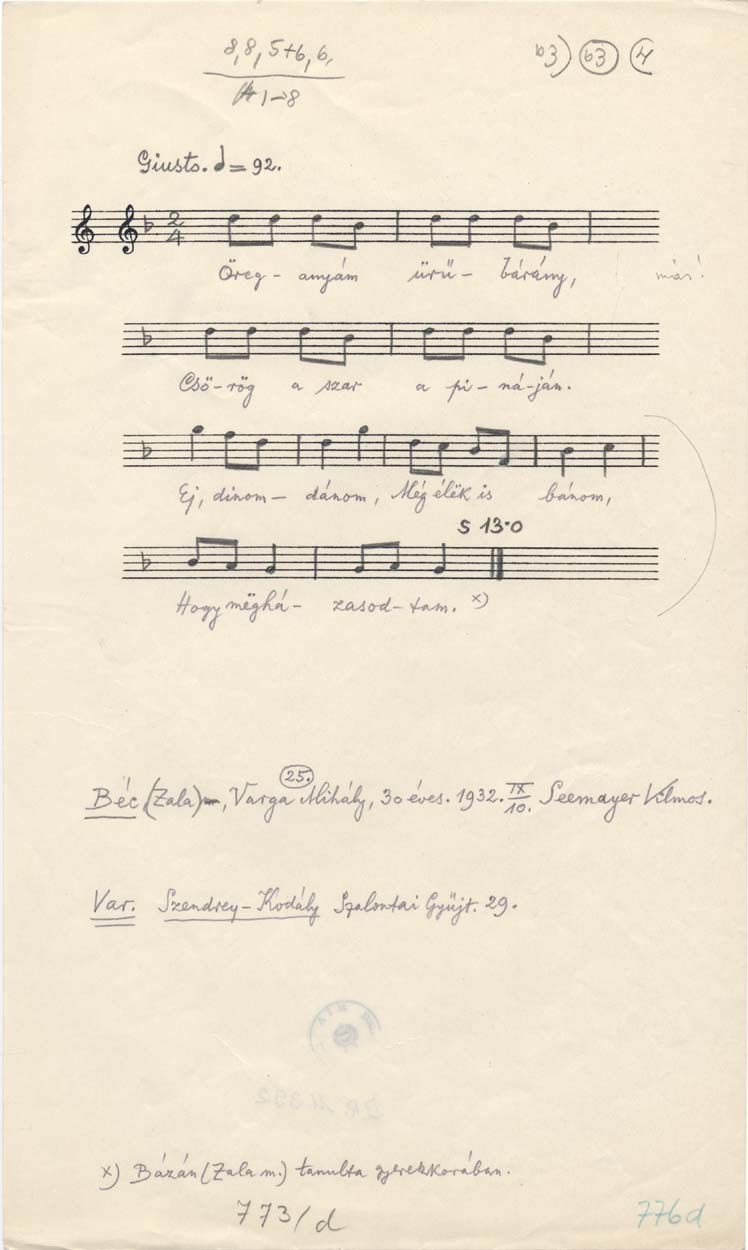 8, 8, 5+6, 6,
b3) (b3) (4
1→8
Giusto. ♩ = 92.
2
4
Öreg - anyám ürü - bárány, már!
Csö-rög a szar a pi-ná-ján.
Ej, dinom - dánom, Még élëk is bánom,
S 13·0
Hogy mëghá - zasod-tam. x)
25.
Béc (Zala), Varga Mihály, 30 éves. 1932. IX/10. Seemayer Vilmos.
Var. Szendrey-Kodály Szalontai Gyűjt. 29.
x) Bázán (Zala m.) tanulta gyerekkorában.
773/d
776d